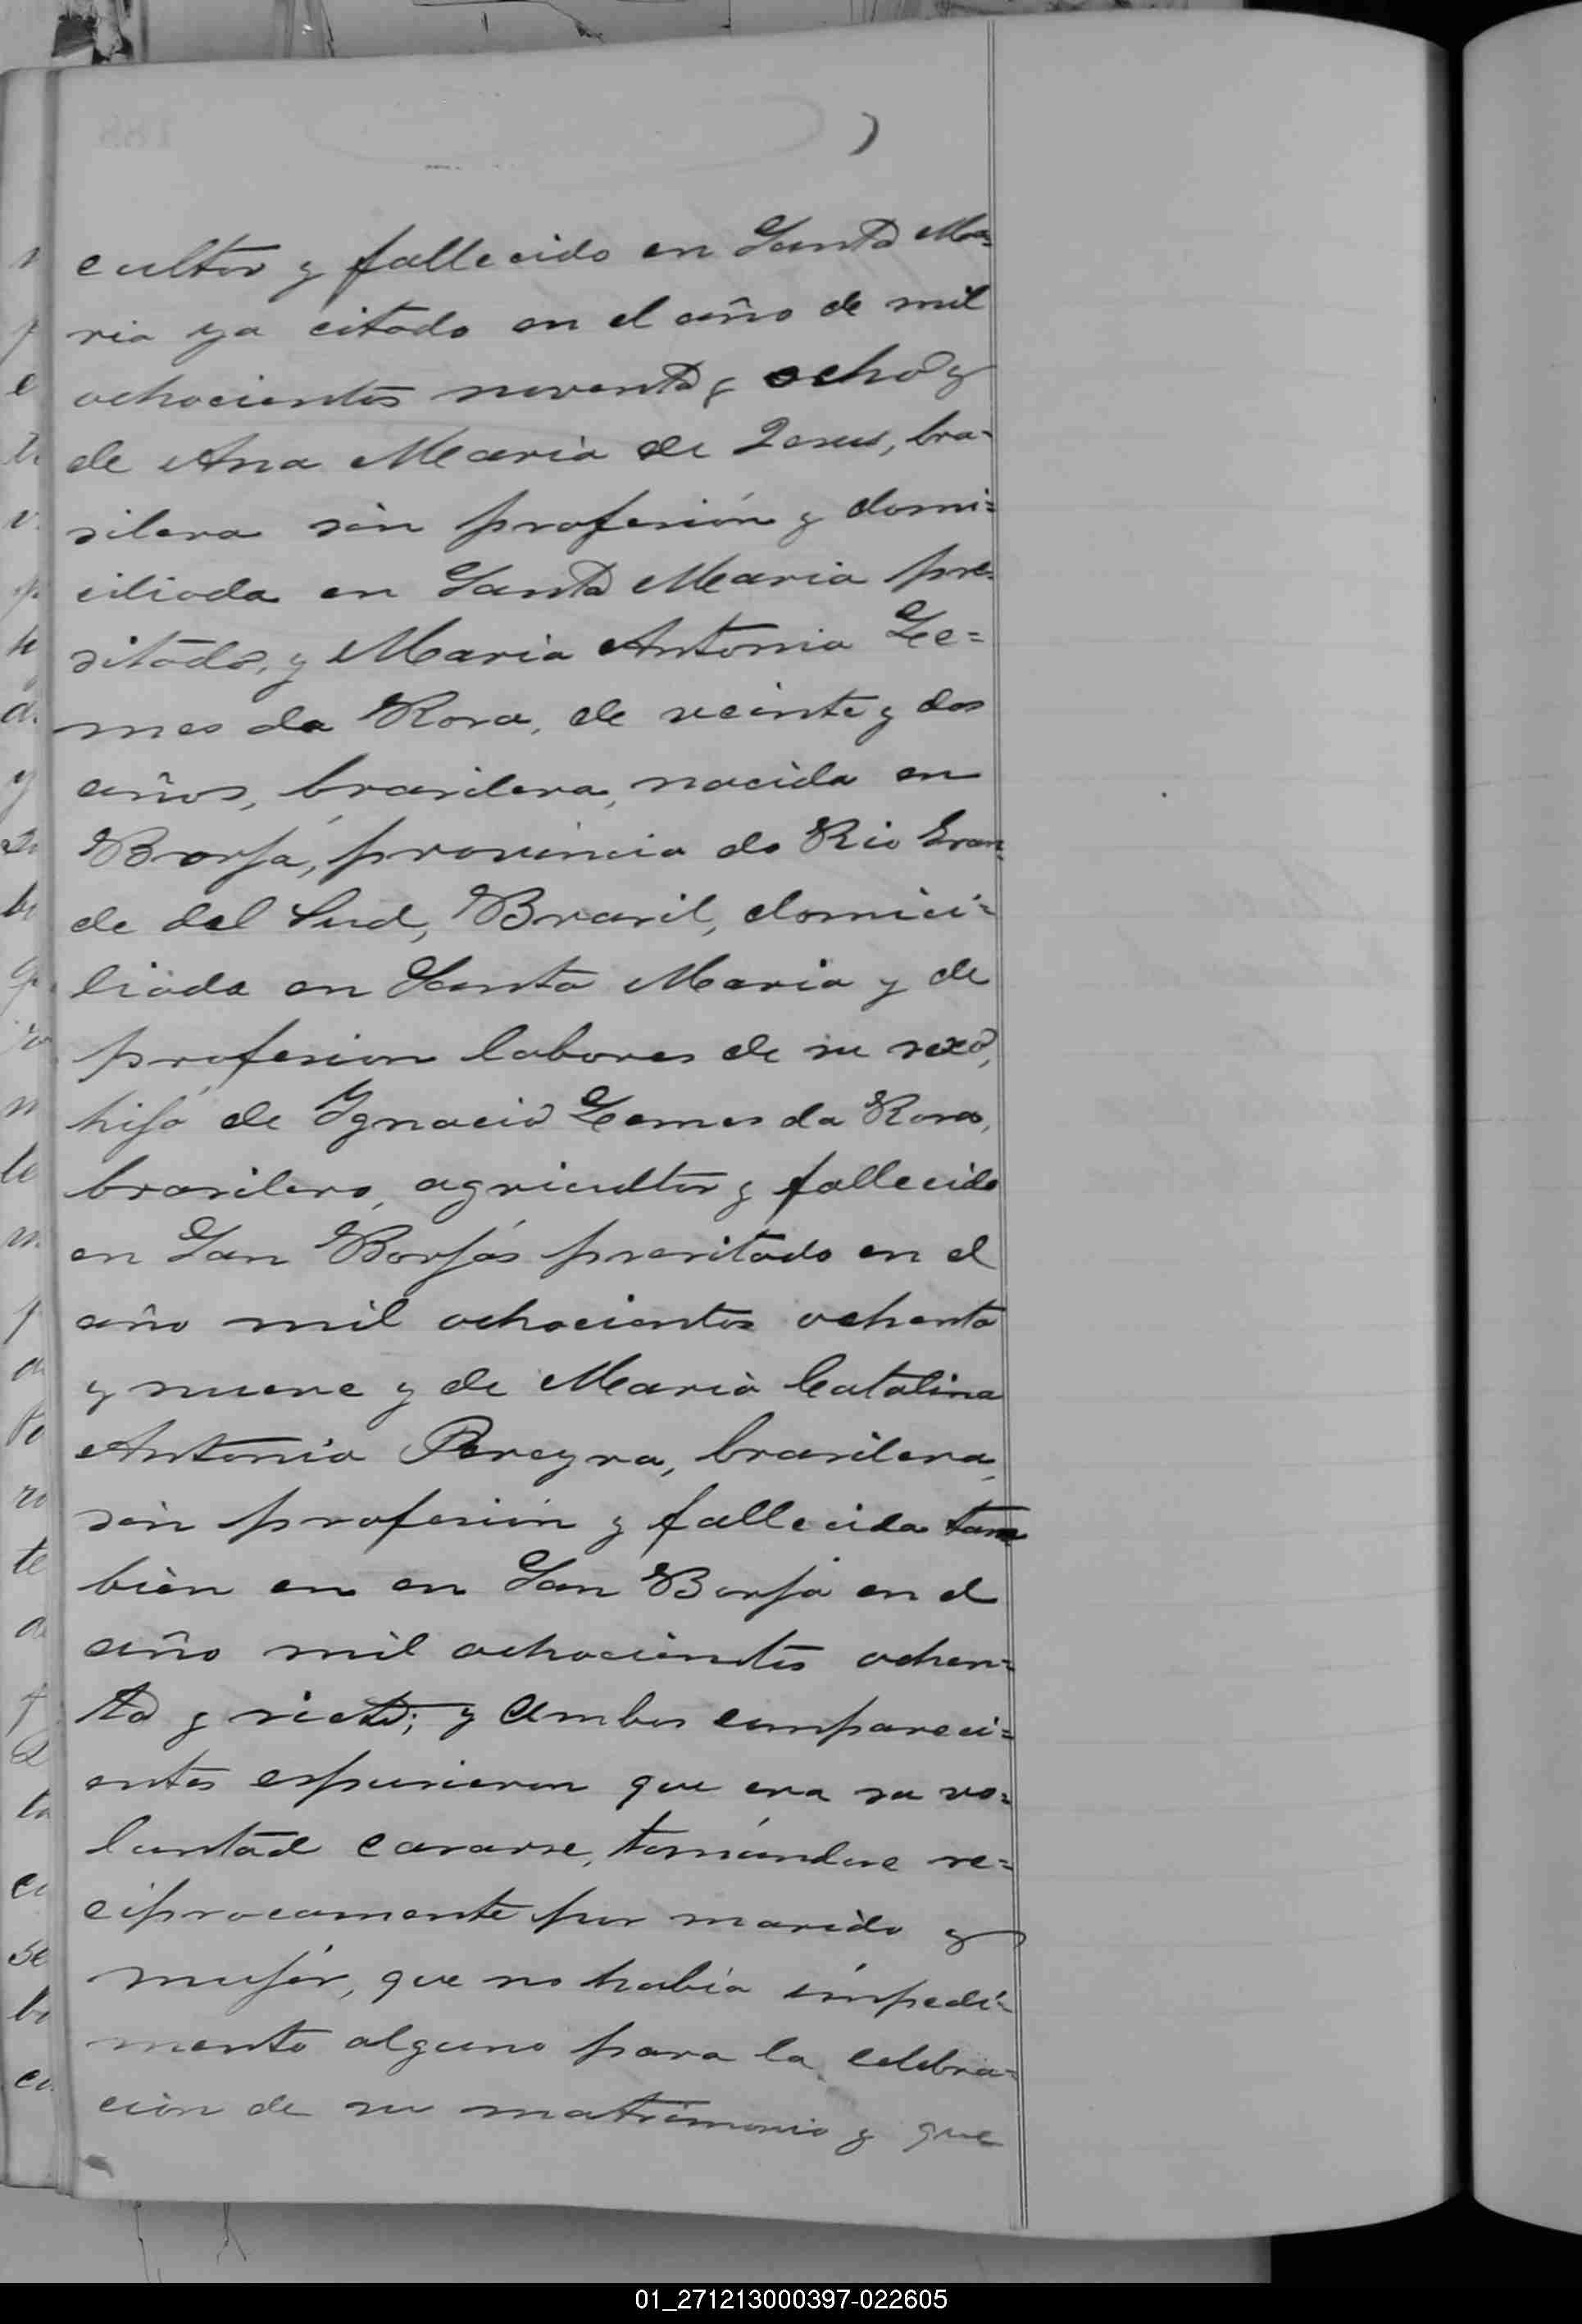 cultor y fallecido en Santa Ma=
ria ya citado en el año de mil
ochocientos noventa y ocho y
de Ana Maria de Jesus, bra=
silera sin profesión y domi=
ciliada en Santa Maria pre=
sitado, y Maria Antonia Le=
mes da Rosa, de veinte y dos
años, brasilera, nacida en
Borja, provincia do Rio Gran=
de del Sud, Brasil, domici=
liada en Santa Maria y de
profesion labores de su sexo,
hija de Ignacio Lemes da Rosa,
brasilero, agricultor y fallecido
en San Borjas presitado en el
año mil ochocientos ochenta
y nueve y de Maria Catalina
Antonia Pereyra, brasilera,
sin profesión y fallecida tam
bien en en San Borja en el
año mil ochocientos ochen=
ta y siete; y ambos compareci=
entes espusieron que era su vo=
luntad casarse, tomándose re=
ciprocamente por marido y
mujer, que no habia impedi=
mento alguno para la celebra=
ción de su matrimonio y que
01_271213000397-022605